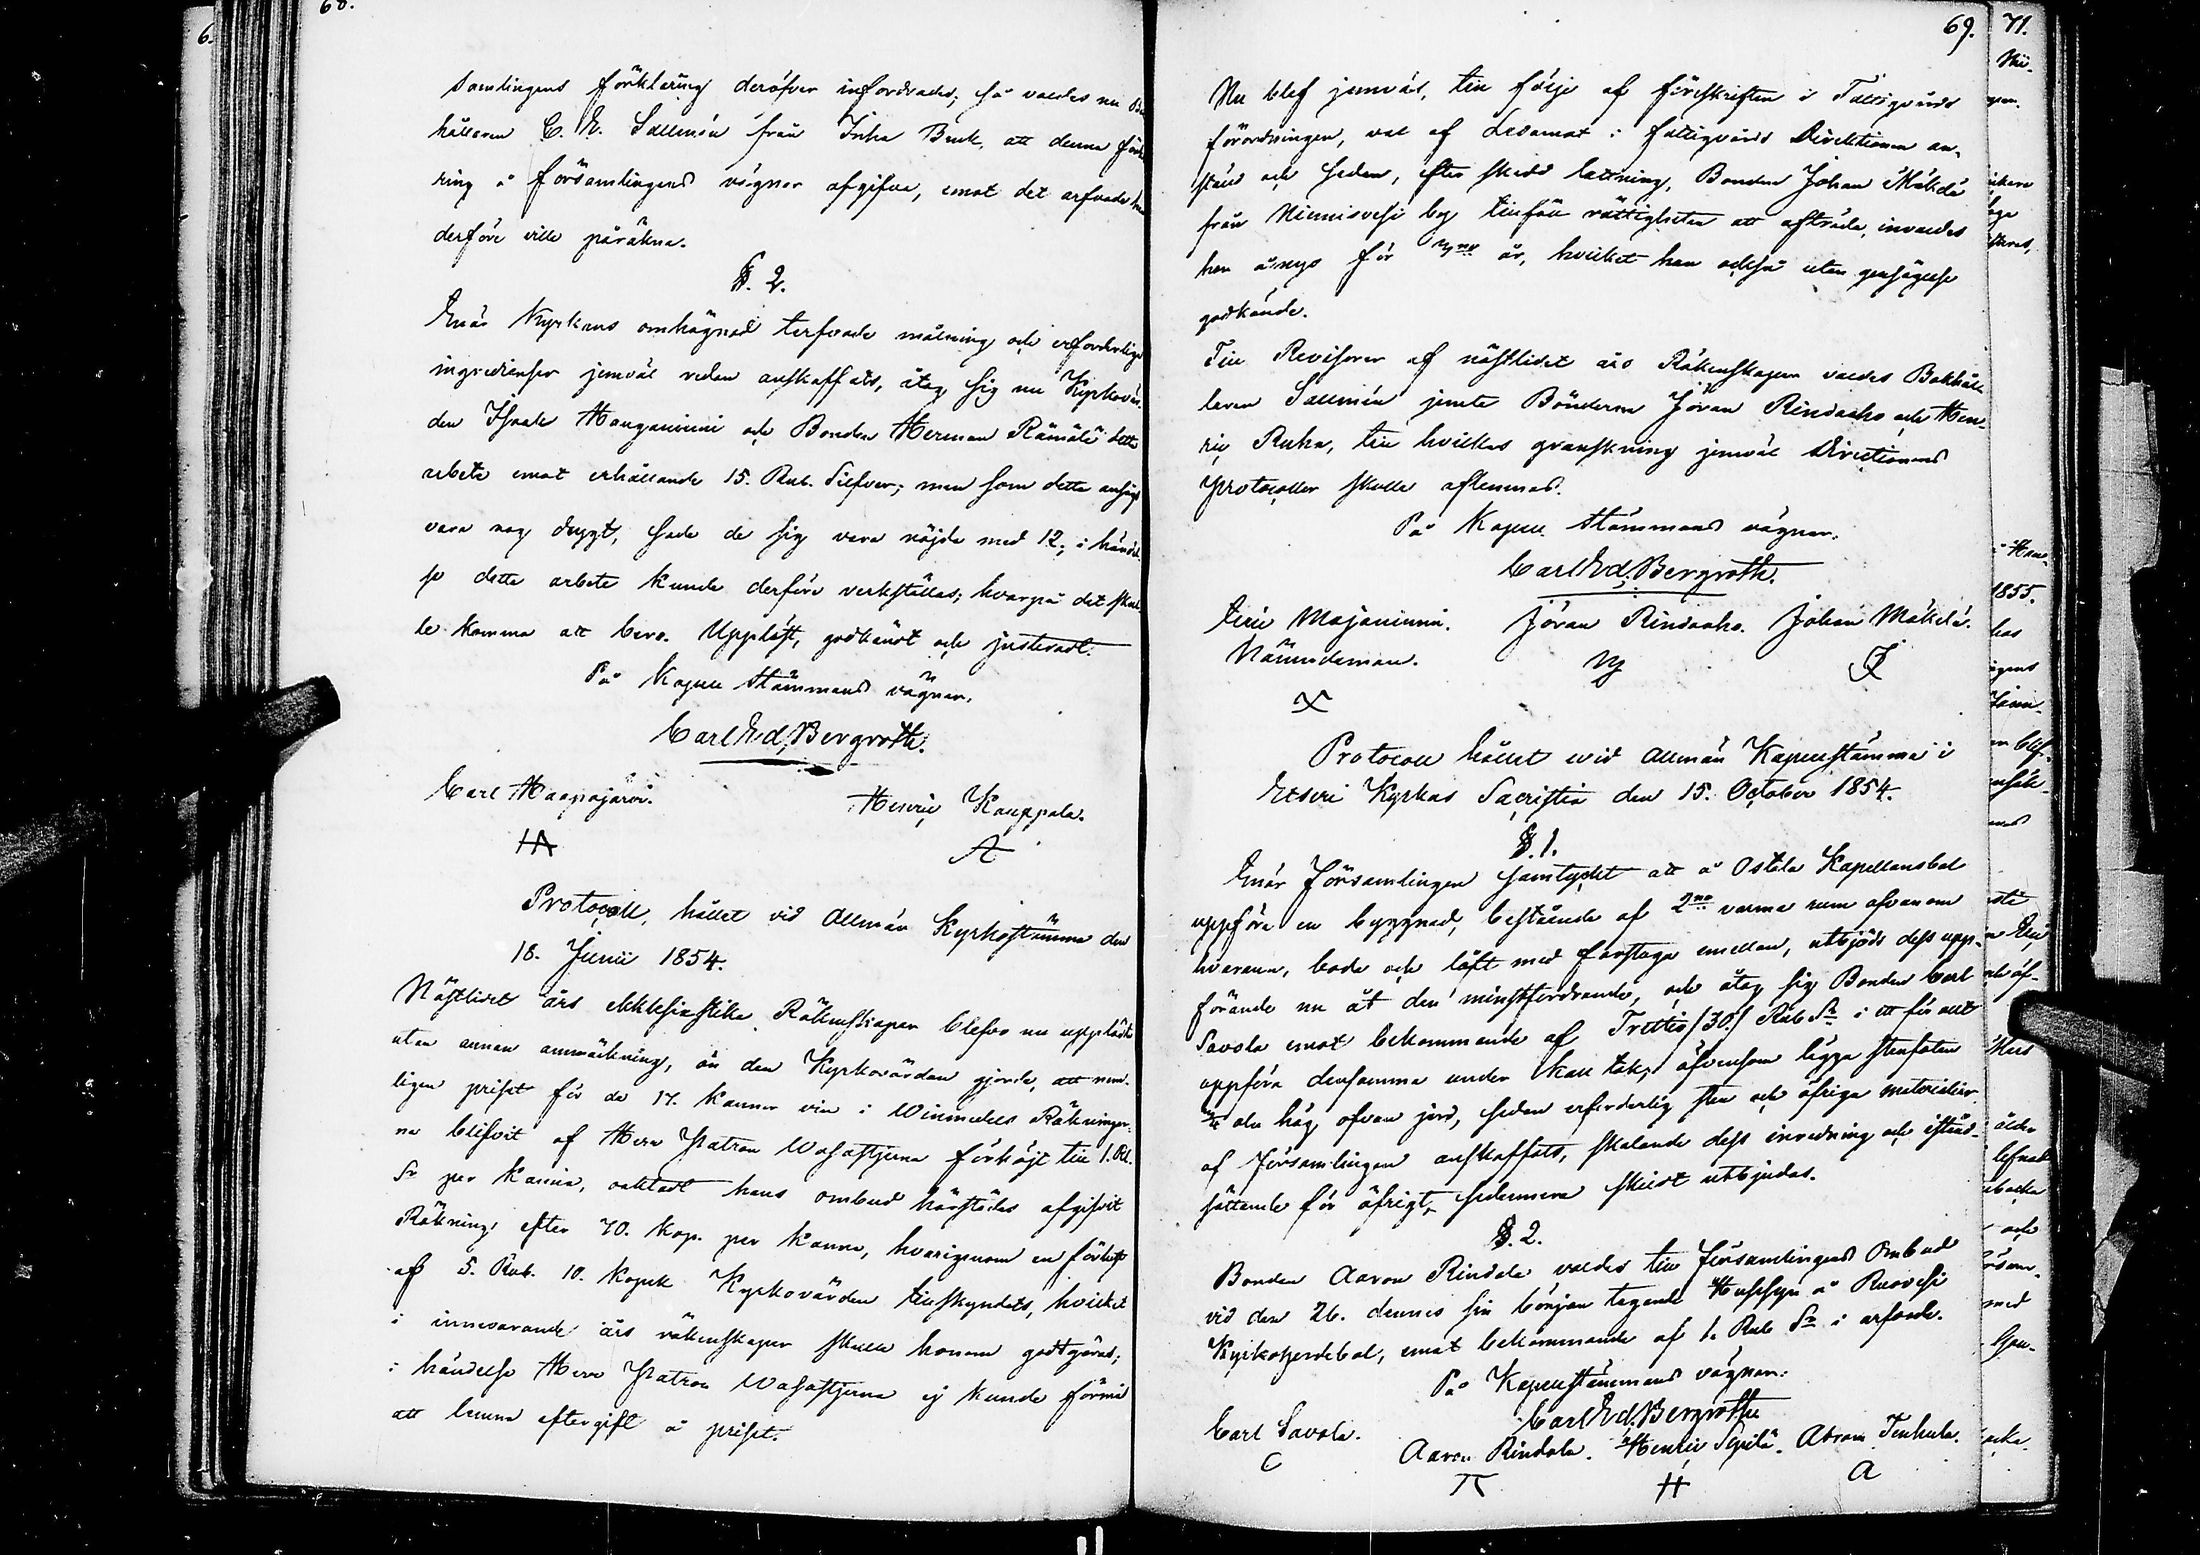 68.
samlingens förklaring deröfver infordrades; så valdes nu Bok
hållaren C. E. Sallmén från Inha Bruk, att denna förkla
ring å församlingens vägnar afgifva, emot det arfvode han
derföre ville påräkna.
§. 2.
Enär Kyrkans omhägnad terfvade målning och erforderliga
ingredienser jemväl redan anskaffats, åtog sig nu Kyrkovär-
den Isaak Mauganiemi och Bonden Herman Rämälä detta
arbete emot erhållande 15. Rub. Silfver; men som detta ansågs
vara nog drygt, sade de sig vara nöjda med 12; i händel
se detta arbete kunde derföre verkställas; hvarpå det skul
le komma att bero. Uppläst, godkändt och justeradt.
På Kapell Stämmans vägnar,
Carl Ed. Bergroth.
Carl Haapajärvi. Henric Kauppala.
HA A
Protocoll, hållet vid Allmän Kyrkostämma den
18. Junii 1854.
Nästlidet års ekklesiastika Räkenskaper blefvo nu upplästa
utan annan anmärkning, än den Kyrkovärden gjorde, att nem-
ligen priset för de 17. kannor vin i Winmedels Räkninger-
na blifvit af Herr Patron Wasastjerna förhöjt till 1. Rbl.
Sr per kanna, oaktadt hans ombud härstädes afgifvit
Räkning efter 70. kop. per kanna, hvarigenom en förlust
af 5. Rub. 10. kopek Kyrkovärden tillskyndats, hvilket
i innevarande års räkenskaper skulle honom godtgöras;
i händelse Herr Patron Wasastjerna ej kunde förmås
att lemna eftergift å priset.
69.
Nu blef jemväl, till följe af föreskriften i Fattigvårds
förordningen, val af Ledamot i fattigvårds Direktionen an-
stäld och sedan, efter skedd lottning, Bonden Johan Mäkelä
från Niemisvesi by tillföll rättigheten att afträda, invaldes
han å nyo för år, hvilket han också utan gensägelse
godkände.
Till Revisorer af nästlidet års Räkenskaper valdes Bokhål
laren Sallmén jemte Bönderne Jöran Rindaaho och Hen-
ric Ruha, till hvilkas granskning jemväl Directionens
Protocoller skulle aflemnas.
På Kapell Stämmans vägnar,
Carl Ed. Bergroth.
Eric Majaniemi. Jöran Rindaaho. Johan Mäkelä.
Nämndeman.
Protocoll hållet wid Allmän Kapellstämma i
Etseri Kyrkas Sacristia den 15. October 1854.
§. 1.
Enär Församlingen samtyckt att å Ostola Kapellansbol
uppföra en byggnad, bestående af 2ne varma rum ofvanom
hvarann, bod och löft med farstuga emellan, utbjöds dess upp-
förande nu åt den minstfordrande, och åtog sig Bonden Carl
Savola emot bekommande af Trettio /30/ Rub Sr i ett för allt
uppföra densamma under kall tak, äfvensom lägga stenfoten
aln hög ofvan jord, sedan erforderlig sten och öfriga materialier
af Församlingen anskaffats, skolande dess inredning och istånd-
sättande för öfrigt, sedermera skildt utbjudas.
§. 2.
Bonden Aaron Rindala valdes till Församlingens Ombud
vid den 26. dennes sin början tagande Husesyn å Ruovesi
Kyrkoherdebol, emot bekommande af 1. Rub Sr i arfvode.
På Kapellstämmans vägnar:
Carl Ed. Bergroth
Carl Savola. Aaron Rindala. Henric Sepilä. Abram Tenhula.
C H A
71.
1855.